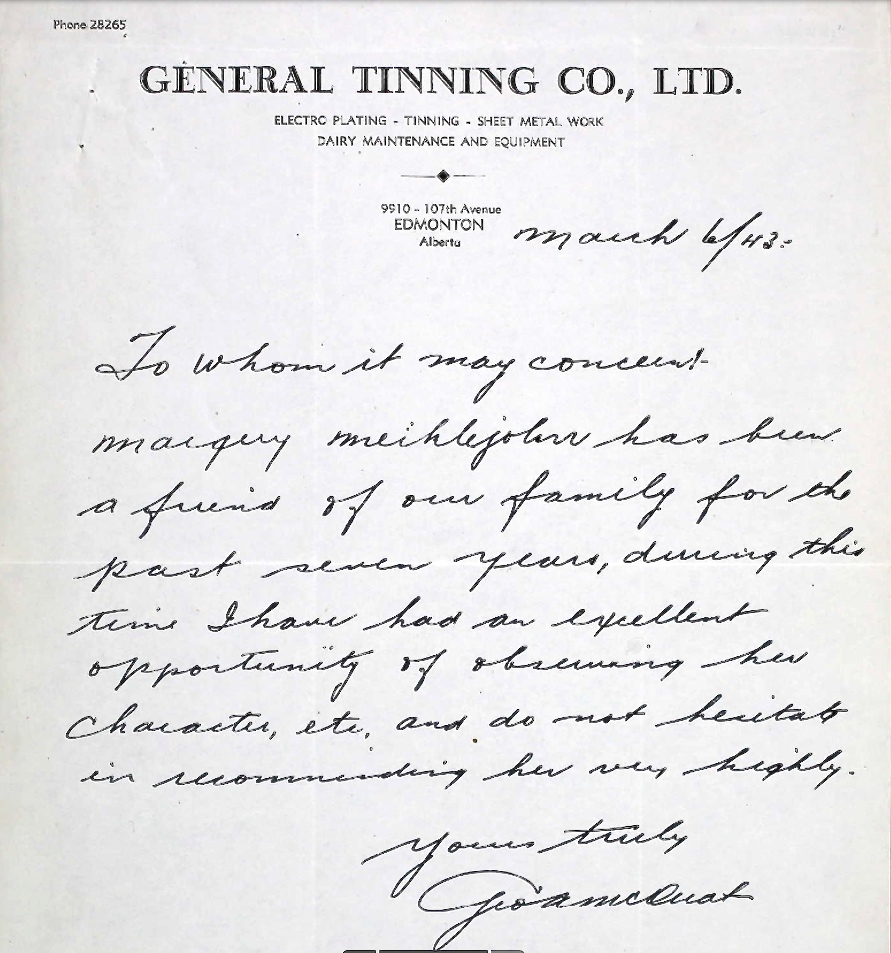 Phone 28265
GENERAL TINNING CO., LTD.
ELECTRO PLATING - TINNING - SHEET METAL WORK
DAIRY MAINTENANCE AND EQUIPMENT
9910 - 107th Avenue
EDMONTON
Alberta
March 6/43.
To whom it may concern
margery meiklejohn has been
a friend of our family for the
past seven years, during this
time I have had an excellent
opportunity of observing her
character, etc, and do not hesitate
in recommending her very highly.
Yours truly
Geo A McQuat